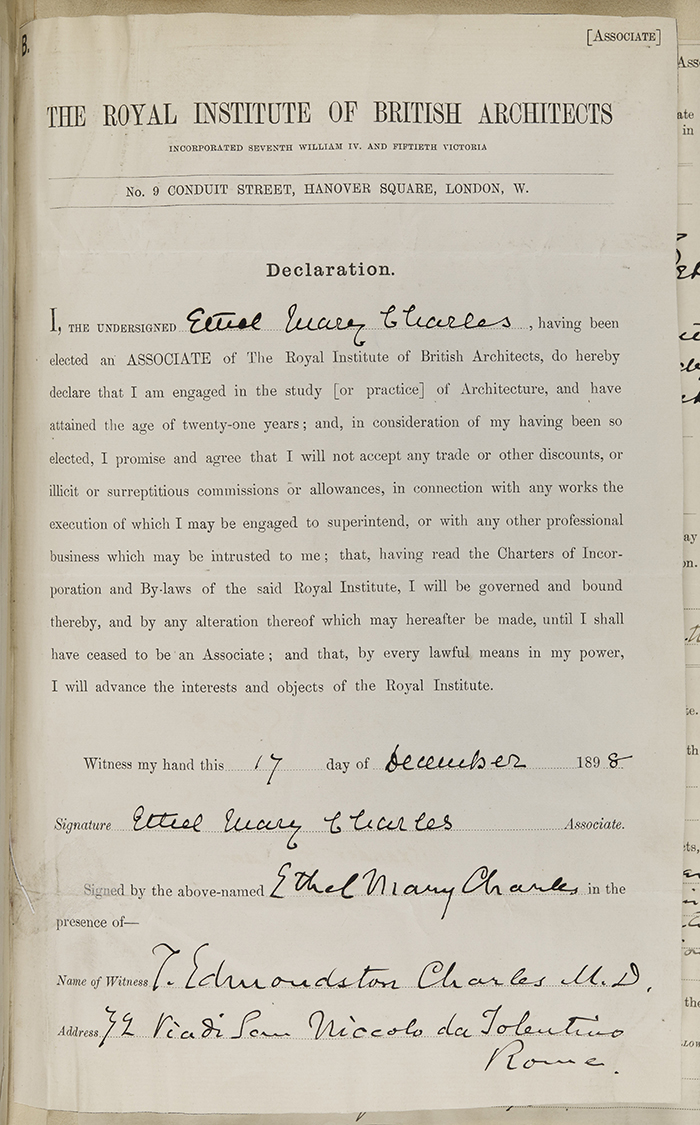 B.
[ASSOCIATE]
THE ROYAL INSTITUTE OF BRITISH ARCHITECTS
INCORPORATED SEVENTH WILLIAM IV. AND FIFTIETH VICTORIA
No. 9 CONDUIT STREET, HANOVER SQUARE, LONDON, W.
Declaration.
I, THE UNDERSIGNED Ethel Mary Charles, having been
elected an ASSOCIATE of The Royal Institute of British Architects, do hereby
declare that I am engaged in the study [or practice] of Architecture, and have
attained the age of twenty-one years; and, in consideration of my having been so
elected, I promise and agree that I will not accept any trade or other discounts, or
illicit or surreptitious commissions or allowances, in connection with any works the
execution of which I may be engaged to superintend, or with any other professional
business which may be intrusted to me; that, having read the Charters of Incor-
poration and By-laws of the said Royal Institute, I will be governed and bound
thereby, and by any alteration thereof which may hereafter be made, until I shall
have ceased to be an Associate; and that, by every lawful means in my power,
I will advance the interests and objects of the Royal Institute.
Witness my hand this 17 day of December 1898
Signature Ethel Mary Charles Associate.
Signed by the above-named Ethel Mary Charles in the
presence of—
Name of Witness T. Edmondston Charles M.D.
Address 72 Via di San Niccolo da Tolentino
Rome.